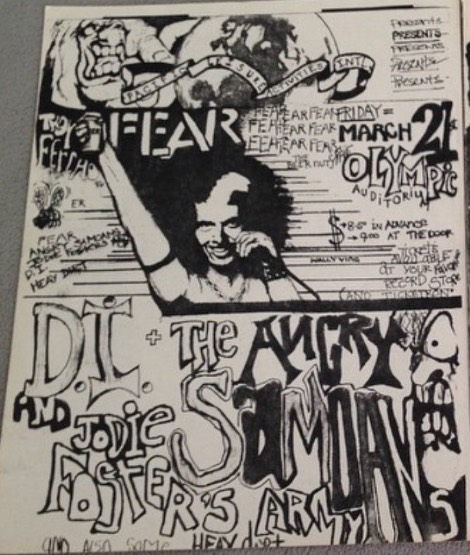 PRESENTS
PRESENTS
PRESENTS
PRESENTS
PRESENTS
PACIFIC LEISURE ACTIVITIES INTL.
FEAR
FEAR FEAR FEAR
FEAR FEAR FEAR
FEAR FEAR FEAR
BEER NUTS
FRIDAY =
MARCH 21st
OLYMPIC
AUDITORIUM
ER
$ 8.50 IN ADVANCE
→ 9.00 AT THE DOOR
TICKETS
AVAILABLE
AT YOUR FAVOR
RECORD STORE
(AND TICKETRON)
WALLY VING
FEAR
ANGRY SAMOANS
JODIE FOSTERS ARMY
D.I.
HEAVY DUTY
D.I. + THE ANGRY
SAMOANS
AND JODIE
FOSTER'S ARMY
AND ALSO SOME HEAVY